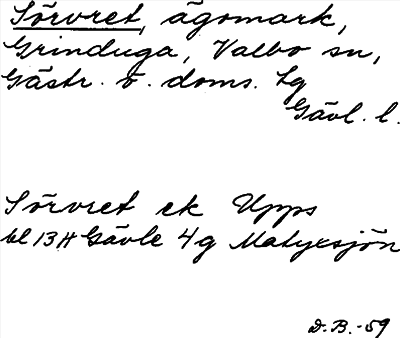 Sörvret, ägomark,
Grinduga, Valbo sn,
Gästr. ö. doms. lg
Gävl. l.
Sörvret ek Upps
bl 13H Gävle 4g Matyxsjön
D.B.-59